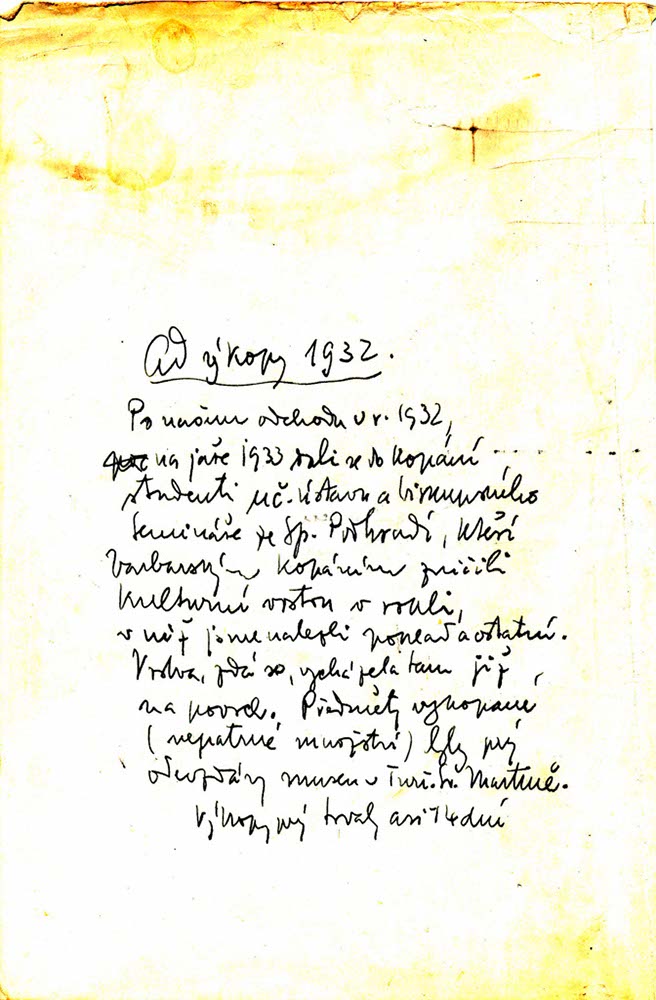 Ad výkopy 1932.
Po našem odchodu v r. 1932,
na jaře 1933 dali se do kopání
studenti uč. ústavu a biskupského
semináře ze Sp. Podhradí, kteří
barbarským kopáním zničili
kulturní vrstvu v rokli,
v níž jsme nalezli poklad a ostatní.
Vrstva, zdá se, vycházela tam již
na povrch. Předměty vykopané
(nepatrné množství) byly prý
odevzdány museu v Turč. Sv. Martině.
Výkopy prý trvaly asi 14 dní